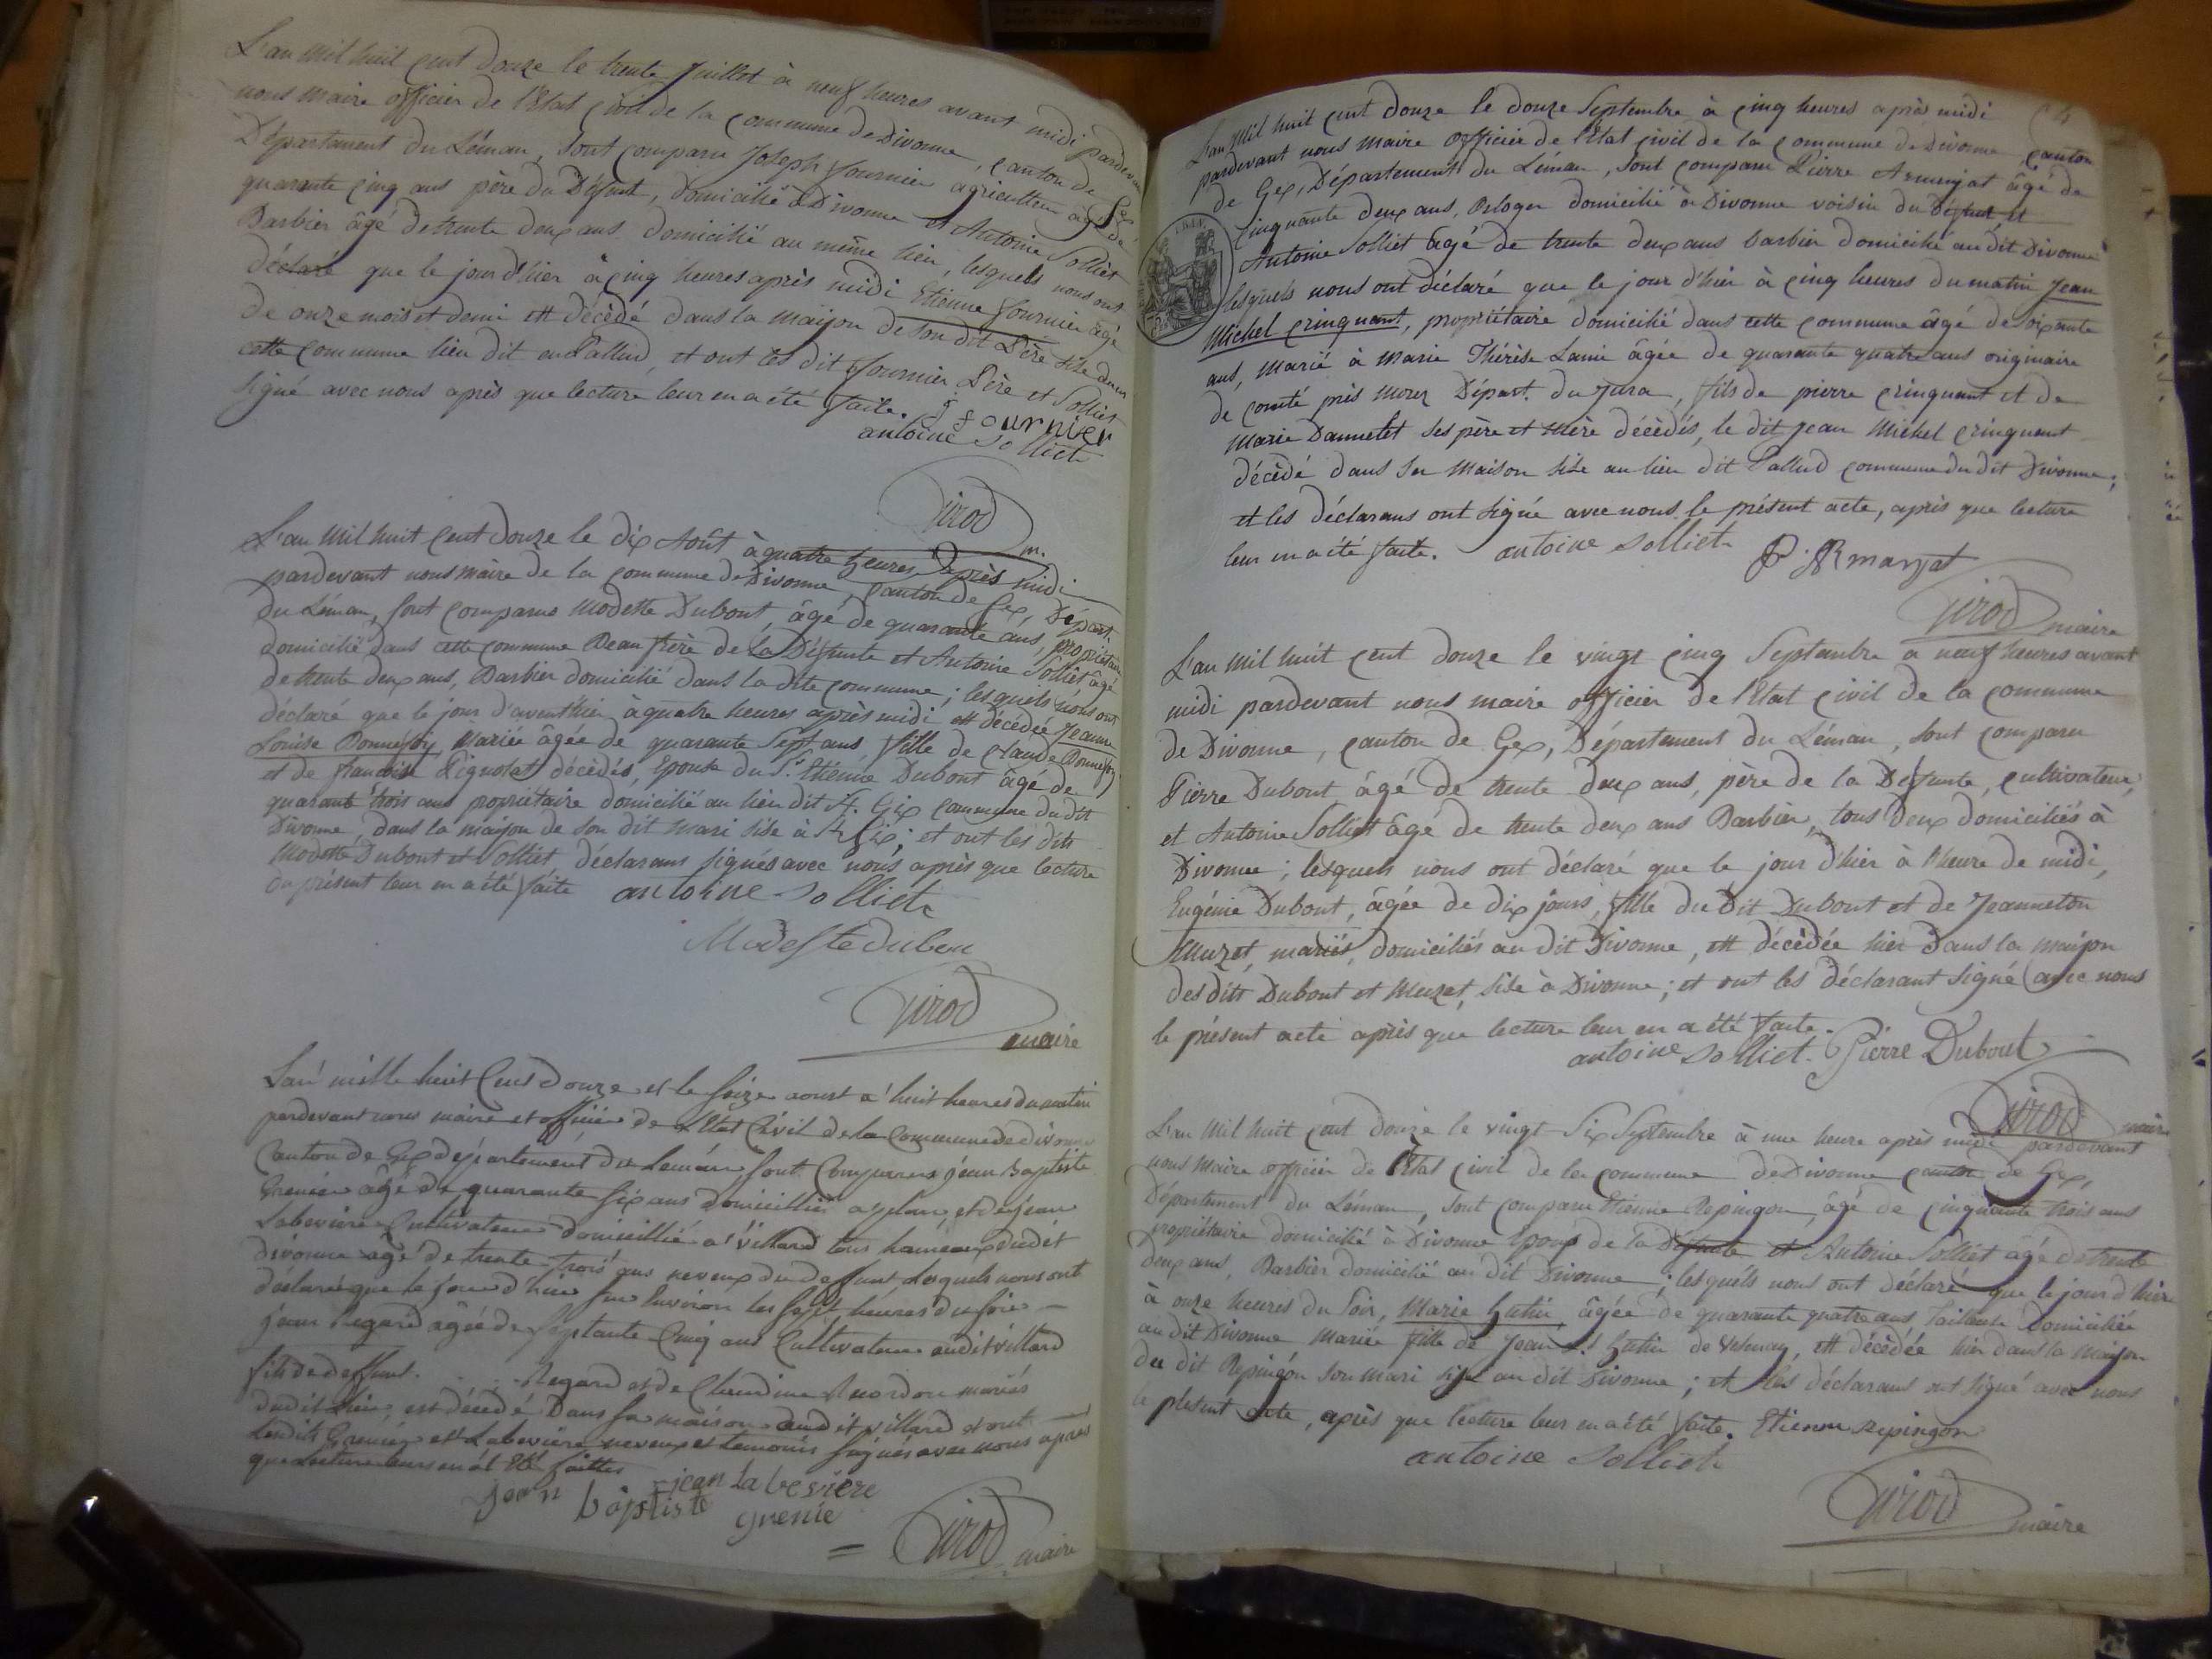 L'an mil huit cent douze le trente Juillet à neuf heures avant midi pardevant
nous maire officier de l'Etat civil de la commune de Divonne, canton de Gex
Département du Léman, sont comparu Joseph fournier agriculteur âgé de
quarante cinq ans père du Défunt, domicilié à Divonne et Antoine Solliet
Barbier âgé de trente deux ans domicilié au même lieu, lesquels nous ont
déclaré que le jour d'hier à cinq heures après midi Etienne fournier âgé
de onze mois et demi est décédé dans la maison de son dit Père sise dans
cette commune lieu dit en Pallud, et ont les dit fournier Père et Solliet
signé avec nous après que lecture leur en a été faite.
j fournier
antoine solliet
Girod
m.
L'an mil huit cent douze le dix Août à quatre heures après midi
pardevant nous maire de la commune de Divonne, canton de Gex, Départ.
du Léman, sont comparus Modeste Dubout, âgé de quarante ans, propriétaire
domicilié dans cette commune Beau frère de la Défunte et Antoine Solliet âgé
de trente deux ans, Barbier domicilié dans la dite commune; lesquels nous ont
déclaré que le jour d'avant hier à quatre heures après midi est décédée Jeanne
Louise Bonnefoy Mariée âgée de quarante sept ans fille de Claude Bonnefoy
et de francoise Pignolat décédés, Epouse du Sr. Etienne Dubout âgé de
quarante trois ans propriétaire domicilié au lieu dit St. Gix commune du dit
Divonne, dans la maison de son dit mari sise à St Gix; et ont les dits
Modeste Dubout et Solliet déclarans signés avec nous après que lecture
du présent leur en a été faite antoine solliet
Modeste dubou
Girod
maire
Lan mille huit Cens Douze et le seize aoust a huit heures du matin
pardevant nous maire et officier de l'Etat Civil de la Commune de divonne
Canton de Gex département du Leman, sont Comparrus jean Baptiste
Grenier âgé de quarante six ans domicillier a plan et de jean
Labeviere Cultivateur domicillié a villard tous hameaux dudit
divonne âgé de trente trois ans neveux du deffunt Lesquels nous ont
déclaré que le jour d'hier sur lenviron les sept heures du soir
jean Regard agée de septante Cinq ans Cultivateur audit villard
fils de deffunt . . . Regard et de Claudine mariés
dudit Lieu, est décédé Dans sa maison audit villard et ont
lesdits Grenier et Labeviere neveux et temoins signés avec nous apres
que Lecture leurs en a eté faittes
jean la beviere
jean baptiste grenie
= Girod maire
L'an mil huit cent douze le douze Septembre à cinq heures après midi
pardevant nous maire Officier de l'Etat civil de la commune de Divonne canton
de Gex, Département du Léman, sont comparu Pierre Armenjat âgé de
cinquante deux ans, Orloger domicilié à Divonne voisin du défunt et
Antoine Solliet âgé de trente deux ans barbier domicilié au dit Divonne
lesquels nous ont déclaré que le jour d'hier à cinq heures du matin Jean
Michel Crinquant, propriétaire domicilié dans cette commune âgé de soixante
ans, marié à Marie Thérèse Lamie âgée de quarante quatre ans originaire
de comté près Morez Départ. du Jura, fils de pierre crinquant et de
Marie Dannetet ses père et mère décédés, le dit Jean Michel crinquant
décédé dans sa maison sise au lieu dit Pallud commune du dit Divonne;
et les déclarans ont signé avec nous le présent acte, après que lecture
leur en a été faite. antoine solliet
P. ARmanjat
Girod maire
L'an mil huit cent douze le vingt cinq Septembre à neuf heures avant
midi pardevant nous maire officier de l'Etat civil de la commune
de Divonne, canton de Gex, Département du Léman, sont comparu
Pierre Dubout âgé de trente deux ans, père de la Défunte, cultivateur,
et Antoine Solliet âgé de trente deux ans Barbier, tous deux domiciliés à
Divonne; lesquels nous ont déclaré que le jour d'hier à l'heure de midi,
Eugénie Dubout, âgée de dix jours, fille du Dit Dubout et de Jeanneton
Muzet, mariés, domiciliés au dit Divonne, est décédée hier Dans la maison
des dits Dubout et Muzet, sise à Divonne; et ont les déclarant signé avec nous
le présent acte après que lecture leur en a été faite.
antoine solliet. Pierre Dubout
Girod maire
L'an mil huit cent douze le vingt-six Septembre à une heure après midi pardevant
nous maire officier de l'Etat civil de la commune de Divonne canton de Gex,
Département du Léman, sont comparu Etienne Repingon, âgé de cinquante trois ans
propriétaire domicilié à Divonne époux de la Défunte et Antoine Solliet âgé de trente
deux ans, Barbier domicilié au dit Divonne; lesquels nous ont déclaré que le jour d'hier
à onze heures du soir, Marie hutin, âgée de quarante quatre ans tailleuse Domiciliée
au dit Divonne Mariée fille de Jean Ls hutin de Vesenay, est décédée hier dans la maison
du dit Repingon son mari sise au dit Divonne; et les déclarans ont signé avec nous
le présent acte, après que lecture leur en a été faite. Etienne repingon
antoine solliet
Girod maire